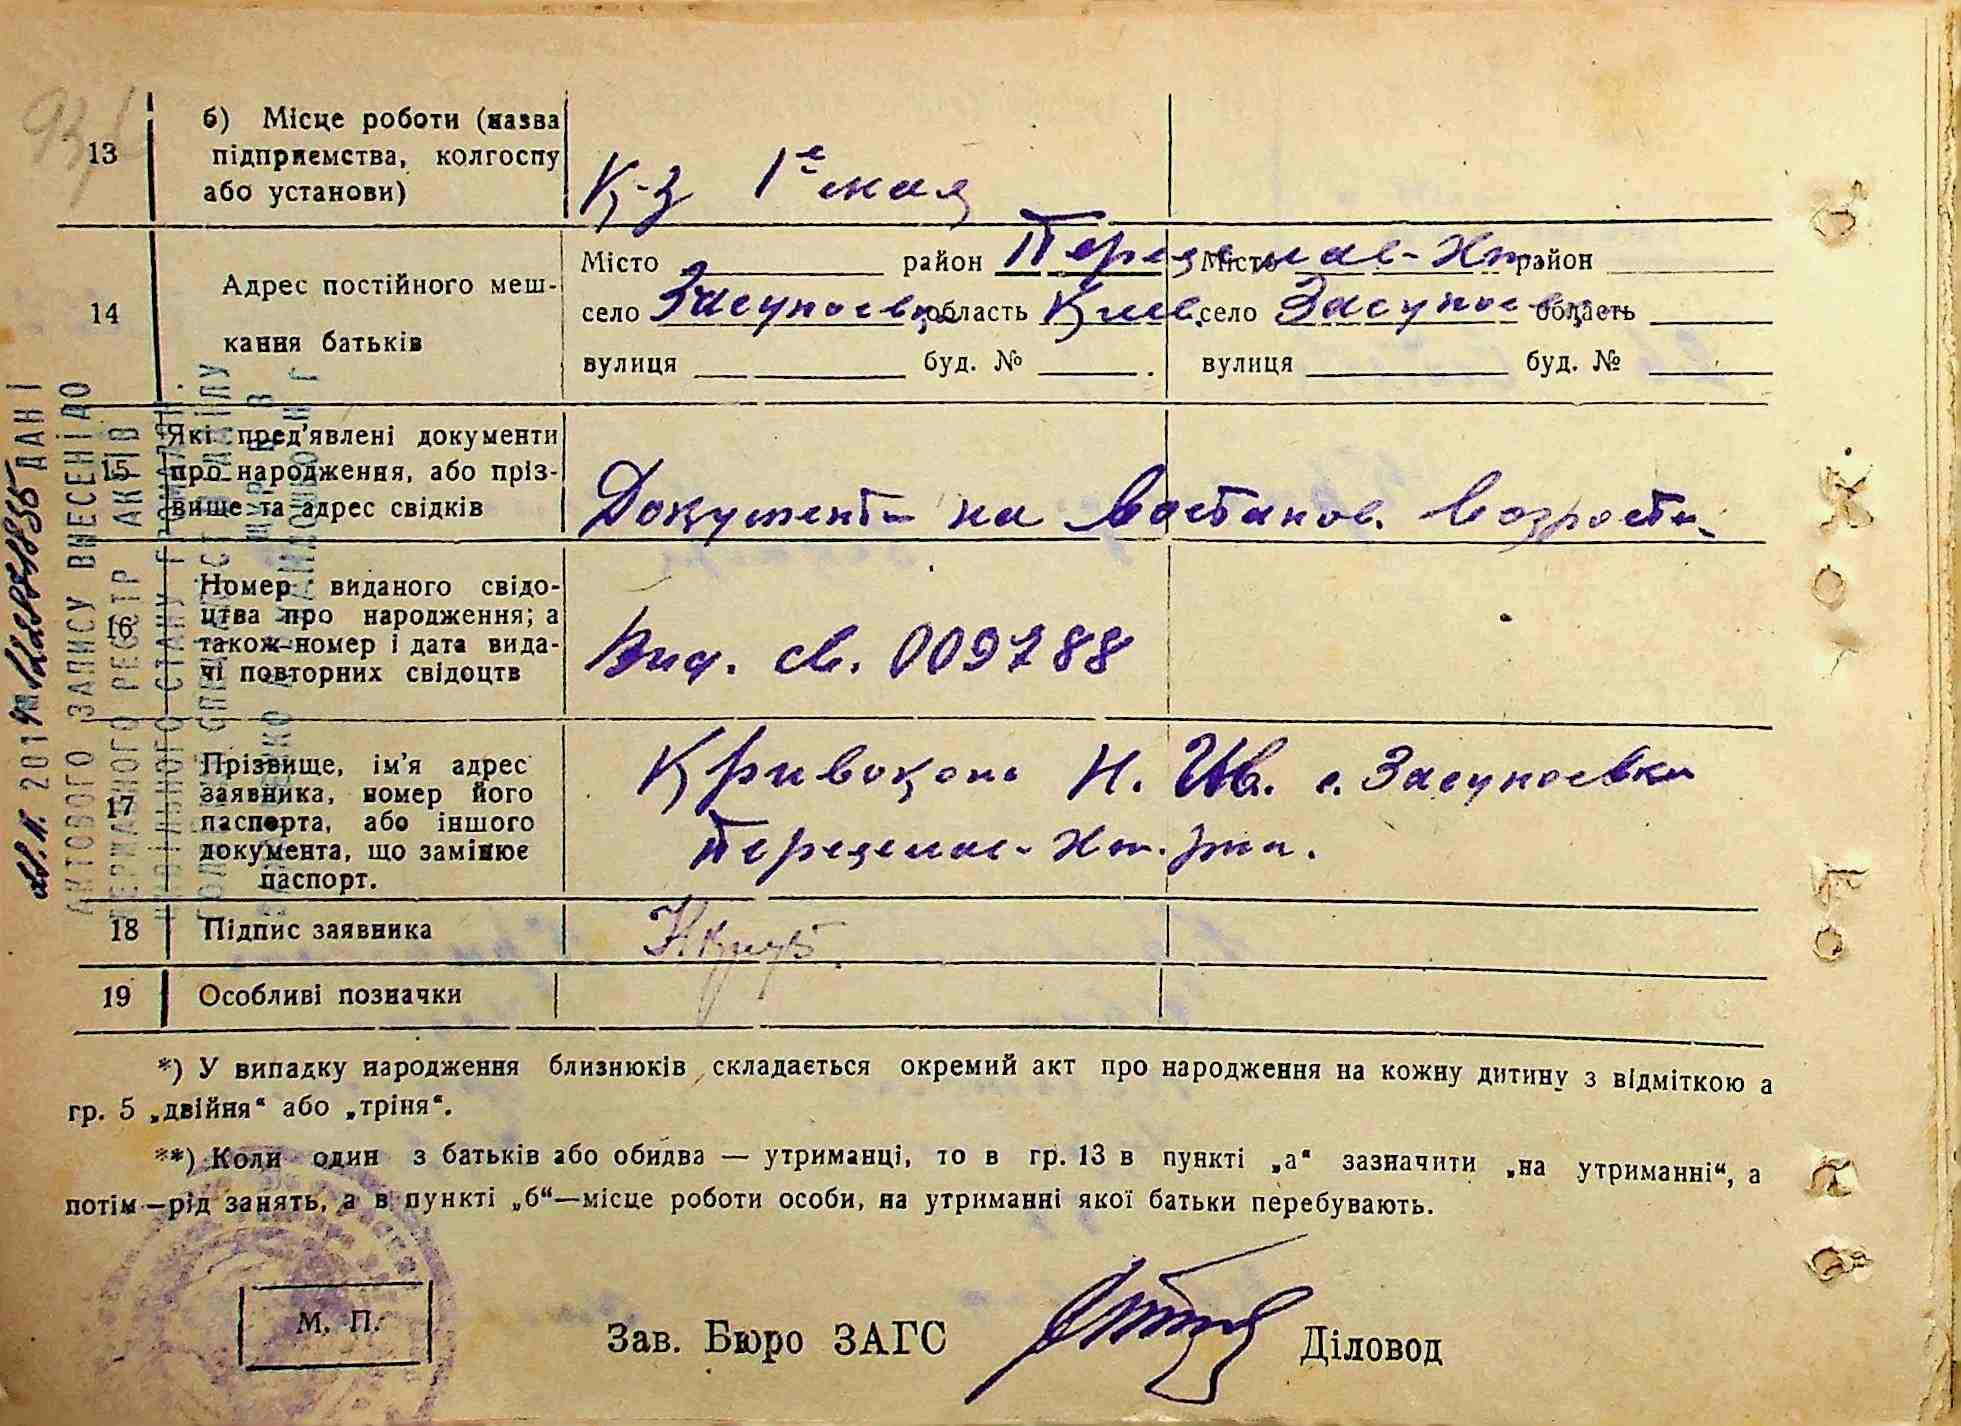 13 б) Місце роботи (назва
підприємства, колгоспу
або установи)
К-з 1е мая
14 Адрес постійного меш-
кання батьків
Місто район Переяслав-Хм.
село Засупоевка область Киев.
вулиця буд. №
Місто район
село Засупоевка область
вулиця буд. №
15 Які пред'явлені документи
про народження, або пріз-
вище та адрес свідків
Документи на востанов. возроста
16 Номер виданого свідо-
цтва про народження; а
також номер і дата вида-
чі повторних свідоцтв
Выд. св. 009788
17 Прізвище, ім'я адрес
заявника, номер його
паспорта, або іншого
документа, що замінює
паспорт.
Кривокони Н. Ив. с. Засупоевки
Переяслав-Хм. р-на.
18 Підпис заявника
19 Особливі позначки
*) У випадку народження близнюків складається окремий акт про народження на кожну дитину з відміткою а
гр. 5 „двійня“ або „тріня“.
**) Коли один з батьків або обидва — утриманці, то в гр. 13 в пункті „а“ зазначити „на утриманні“, а
потім—рід занять, а в пункті „б“—місце роботи особи, на утриманні якої батьки перебувають.
М. П.
Зав. Бюро ЗАГС Діловод
ДАНІ
АКТОВОГО ЗАПИСУ ВНЕСЕНІ ДО
ДЕРЖАВНОГО РЕЄСТР АКТІВ
ЦИВІЛЬНОГО СТАНУ ГРОМАДЯН